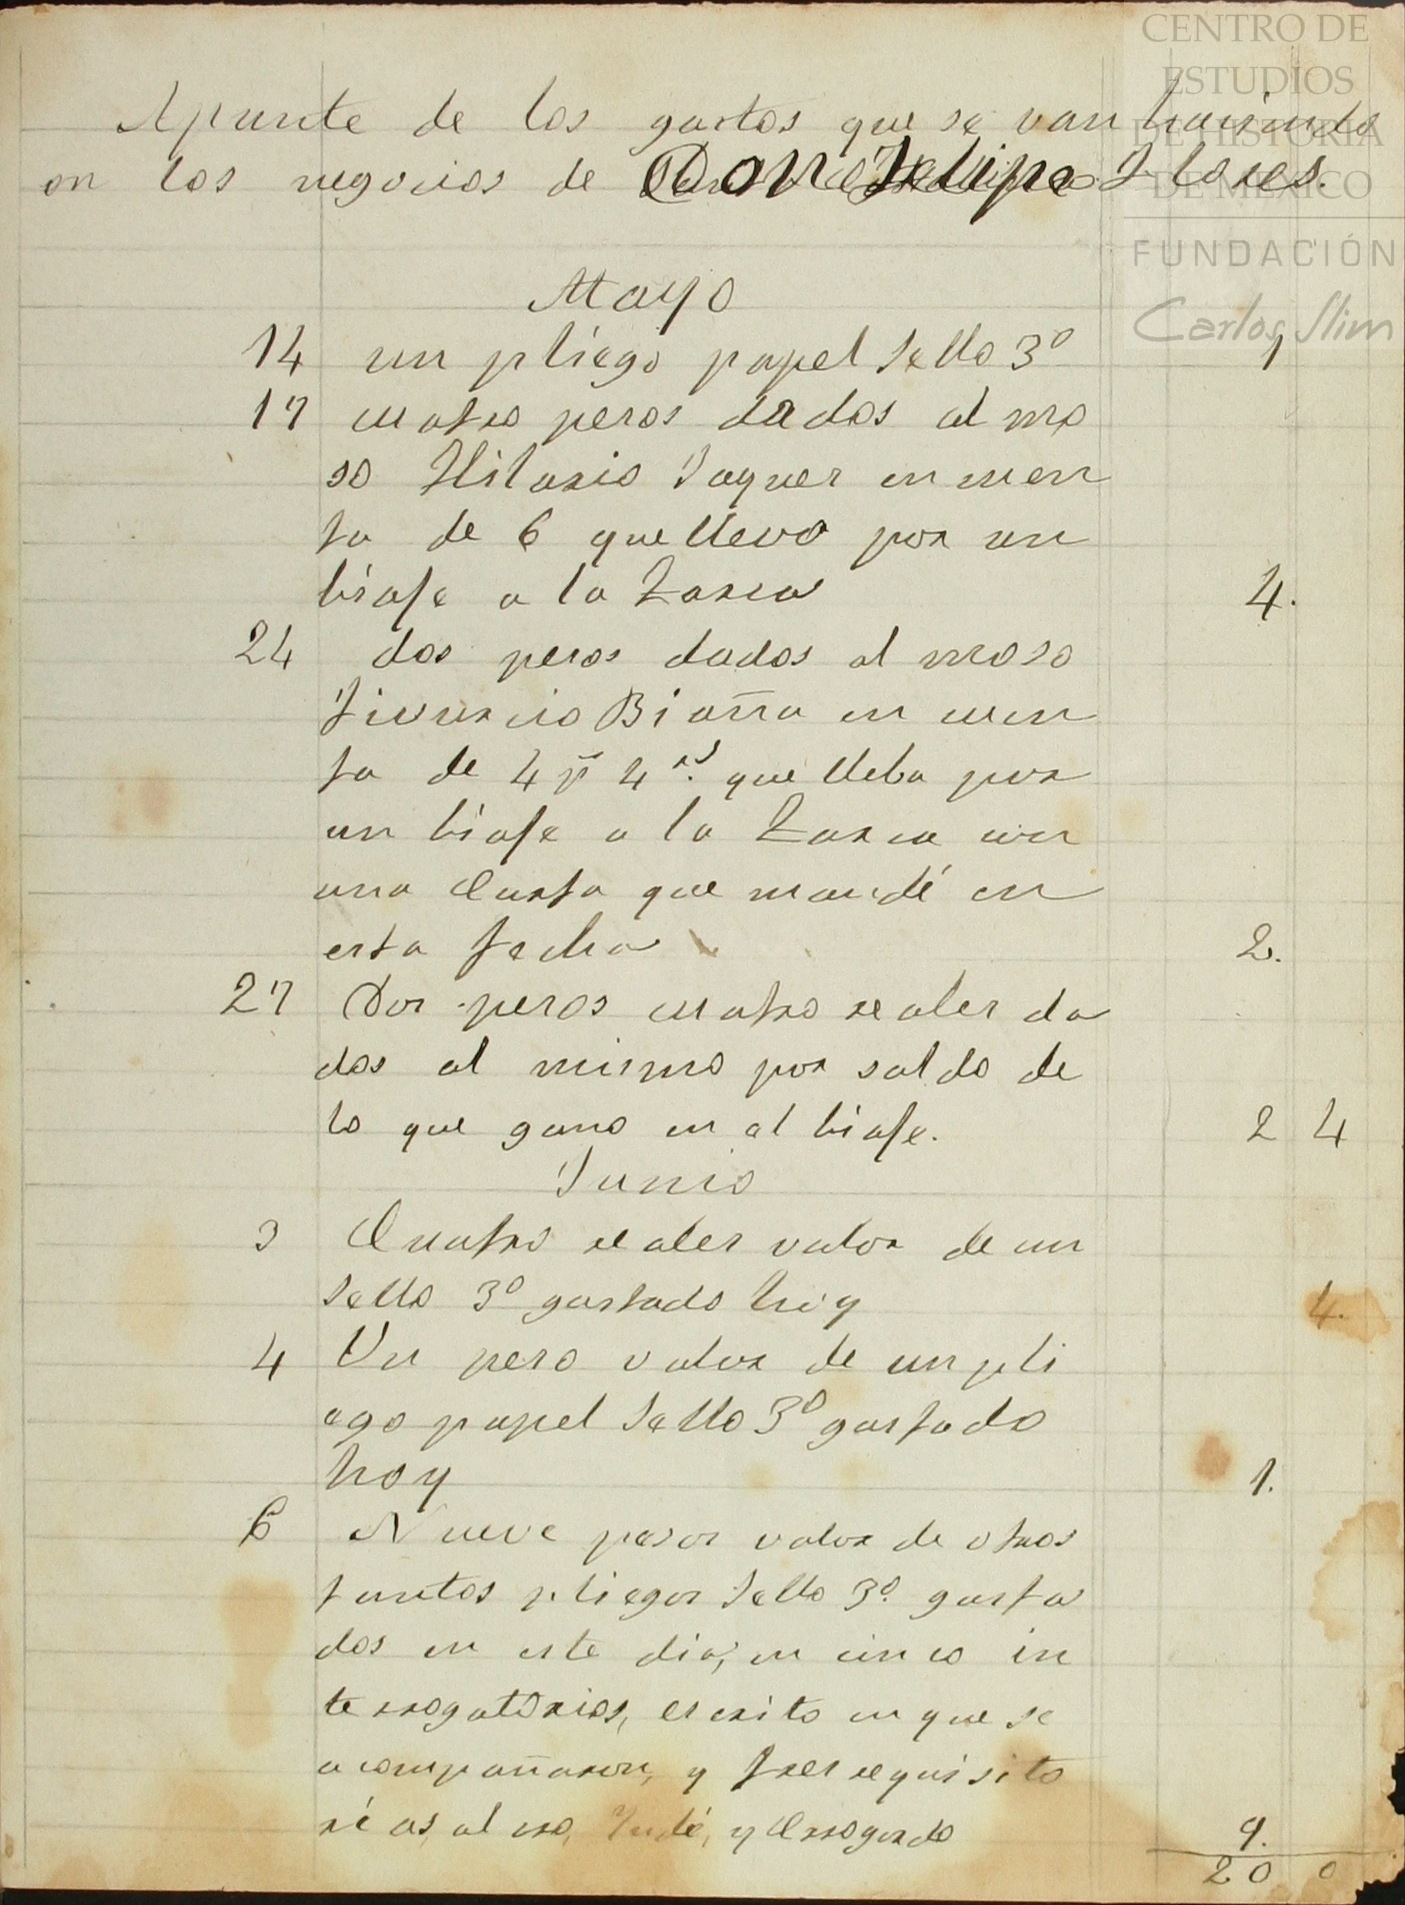 CENTRO DE
ESTUDIOS
DE HISTORIA
DE MÉXICO
FUNDACIÓN
Carlos Slim
Apunte de los gastos que se van haciendo
en los negocios de Don Felipe Flores.
Mayo
14 un pliego papel sello 3º 1
17 cuatro pesos dados al mo
so Hilario Jaquez en cuen
ta de 6 que llevo por un
biaje a la Zarca 4.
24 dos pesos dados al moso
Biaña en cuen
ta de 4 p 4 rs. que lleba por
un biaje a la Zarca con
una Carta que mandé en
esta fecha 2.
27 Dos pesos cuatro reales da
dos al mismo por saldo de
lo que gano en el biaje. 2 4
Junio
3 Cuatro reales valor de un
sello 3º gastado hoy 4.
4 Un peso valor de un pli
ego papel sello 3º gastado
hoy 1.
6 Nueve pesos valor de otros
tantos pliegos sello 3º. gasta
dos en este dia, en cinco in
terrogatorios, escrito en que se
acompañaron, y tres requisito
rias al oro, Indé, y
9.
20 0